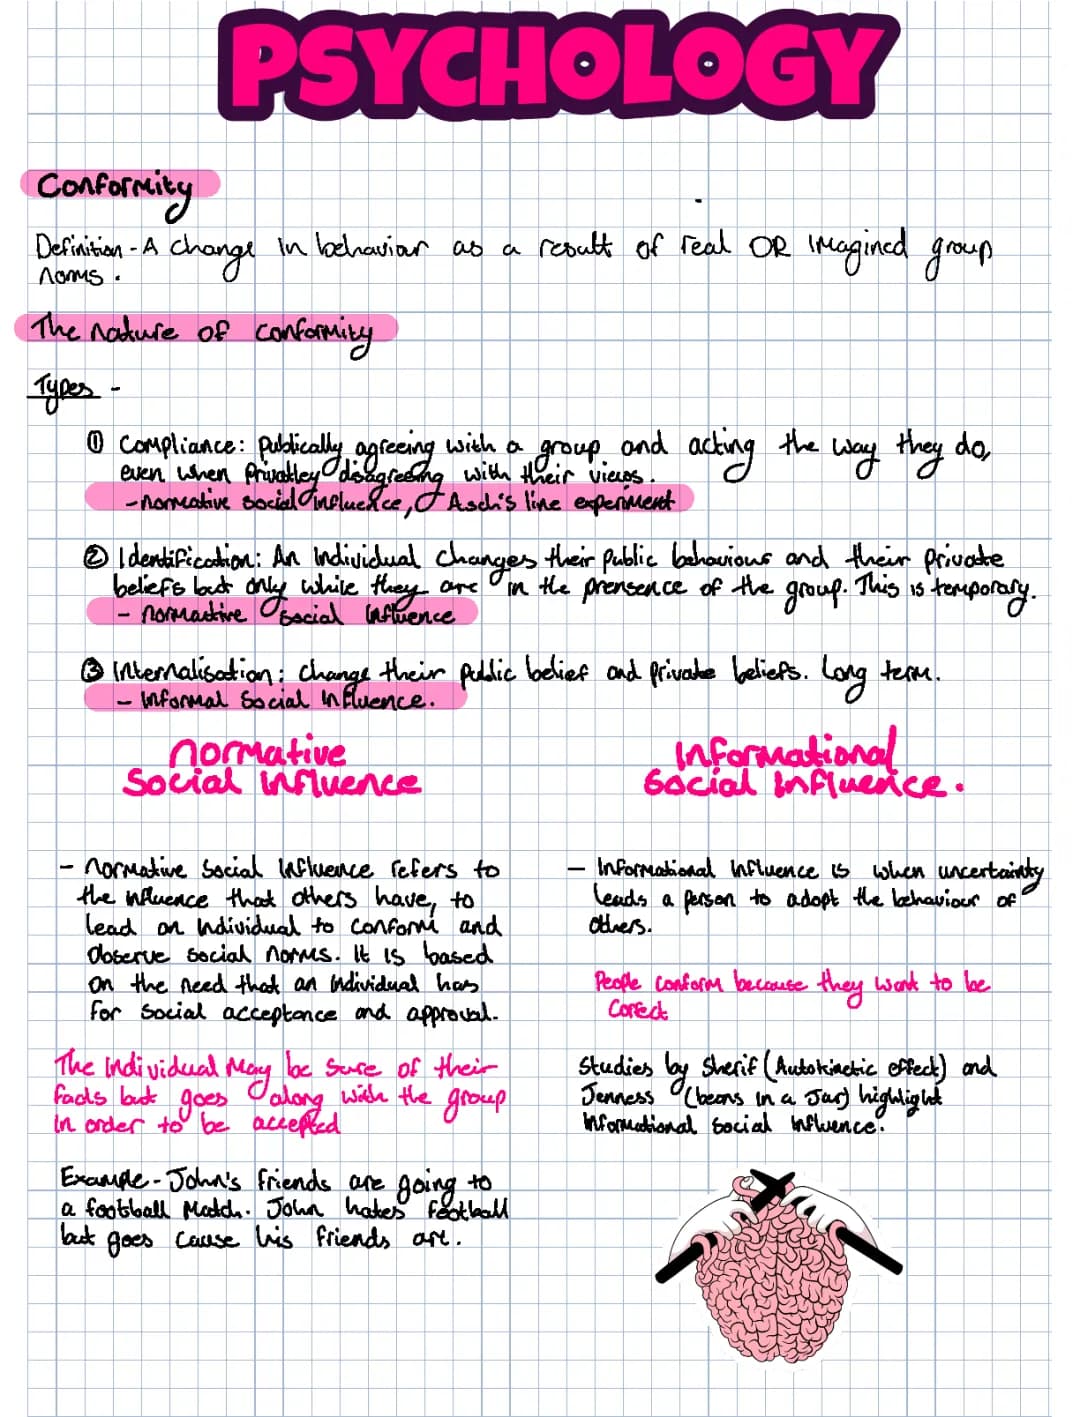 PSYCHOLOGY
Conformity
Definition - A change in behaviour as a result of real OR imagined group
norms.
The nature of conformity
Types -
① Compliance: Publically agreeing with a group and acting the way they do,
even when Privatley disagreeing with their views.
- normative social influence, Asch's line experiment
② Identification: An individual changes their public behaviours and their private
beliefs but only while they are in the prensence of the group. This is temporary.
- normative social influence
③ Internalisation: change their public belief and private beliefs. Long term.
- informal social influence.
normative
Social influence
- normative social influence refers to
the influence that others have, to
lead an individual to conform and
observe social norms. It is based
on the need that an individual has
for social acceptance and approval.
The individual may be sure of their
facts but goes along with the group
in order to be accepted
Example - John's friends are going to
a football match. John hates football
but goes cause his friends are.
Informational
Social Influence.
- Informational influence is when uncertainty
leads a person to adopt the behaviour of
others.
People conform because they want to be
Corect
Studies by Sherif (Autokinetic effect) and
Jenness (beans in a Jar) highlight
informational social influence.